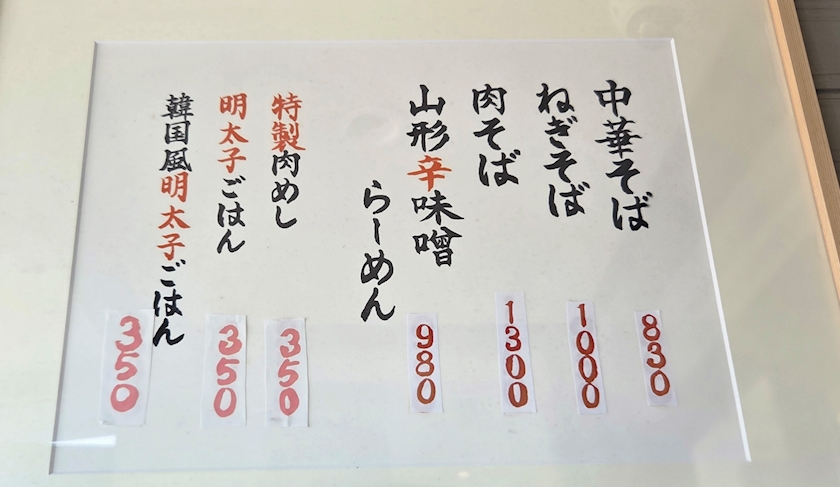 中華そば
830
ねぎそば
1000
肉そば
1300
山形辛味噌
らーめん
980
特製肉めし
350
明太子ごはん
350
韓国風明太子ごはん
350